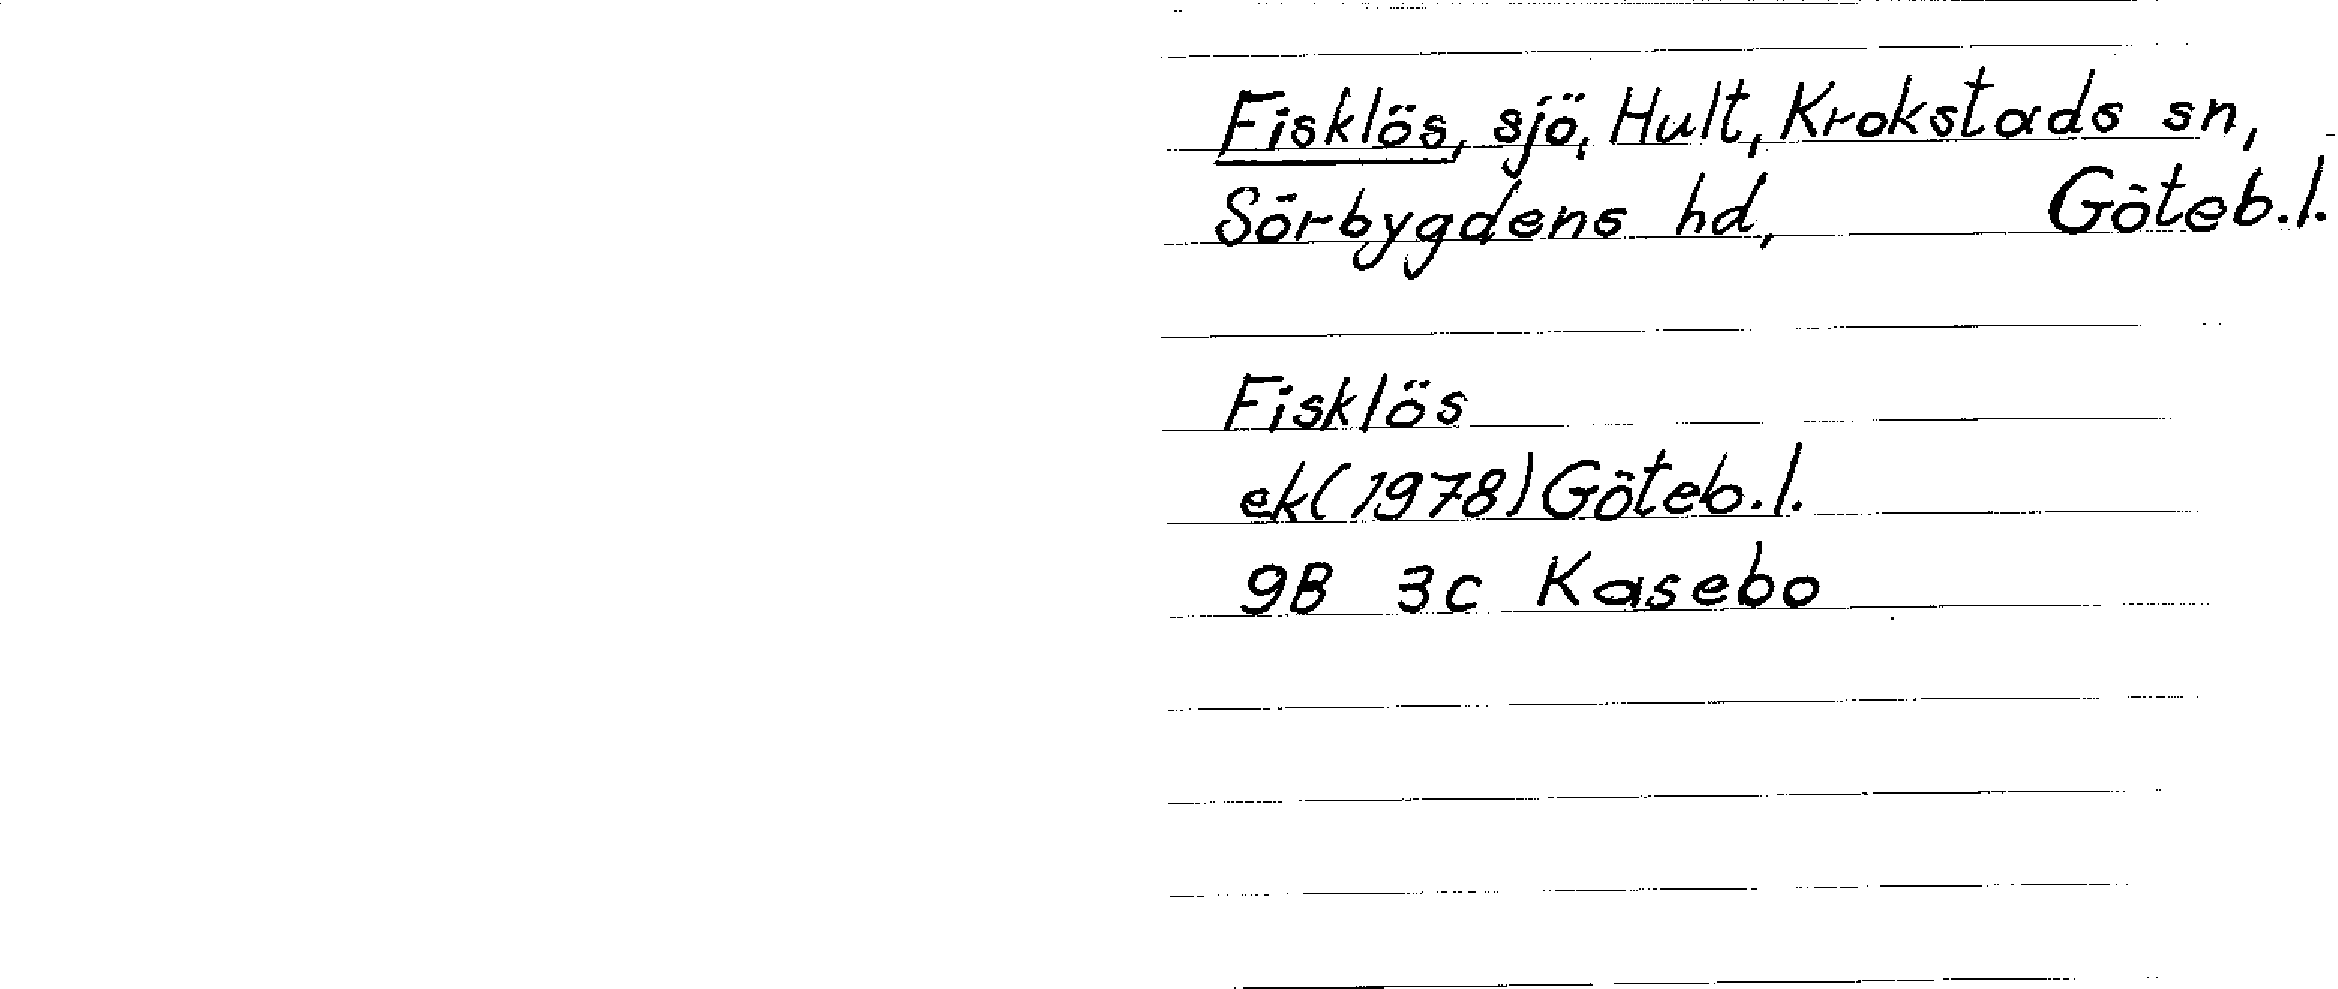 Fisklös, sjö, Hult, Krokstads sn,
Sörbygdens hd, Göteb.l.
Fisklös
ek(1978) Göteb.l.
9B 3c Kasebo